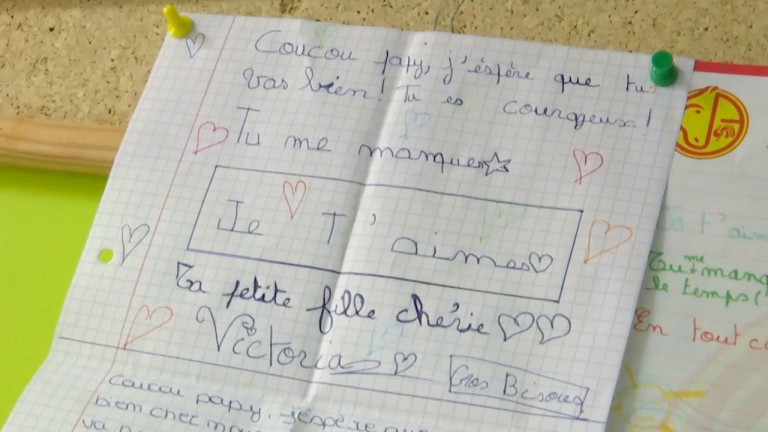 Coucou papy, j'éspère que tu
vas bien! Tu es courageux!
Tu me manques
Je T'aimes
Ta petite fille chérie
Victoria
Gros Bisous
coucou papy. j'espère que
bien chez
va
Je t'aim
Tu me manq
le temps!
En tout ca